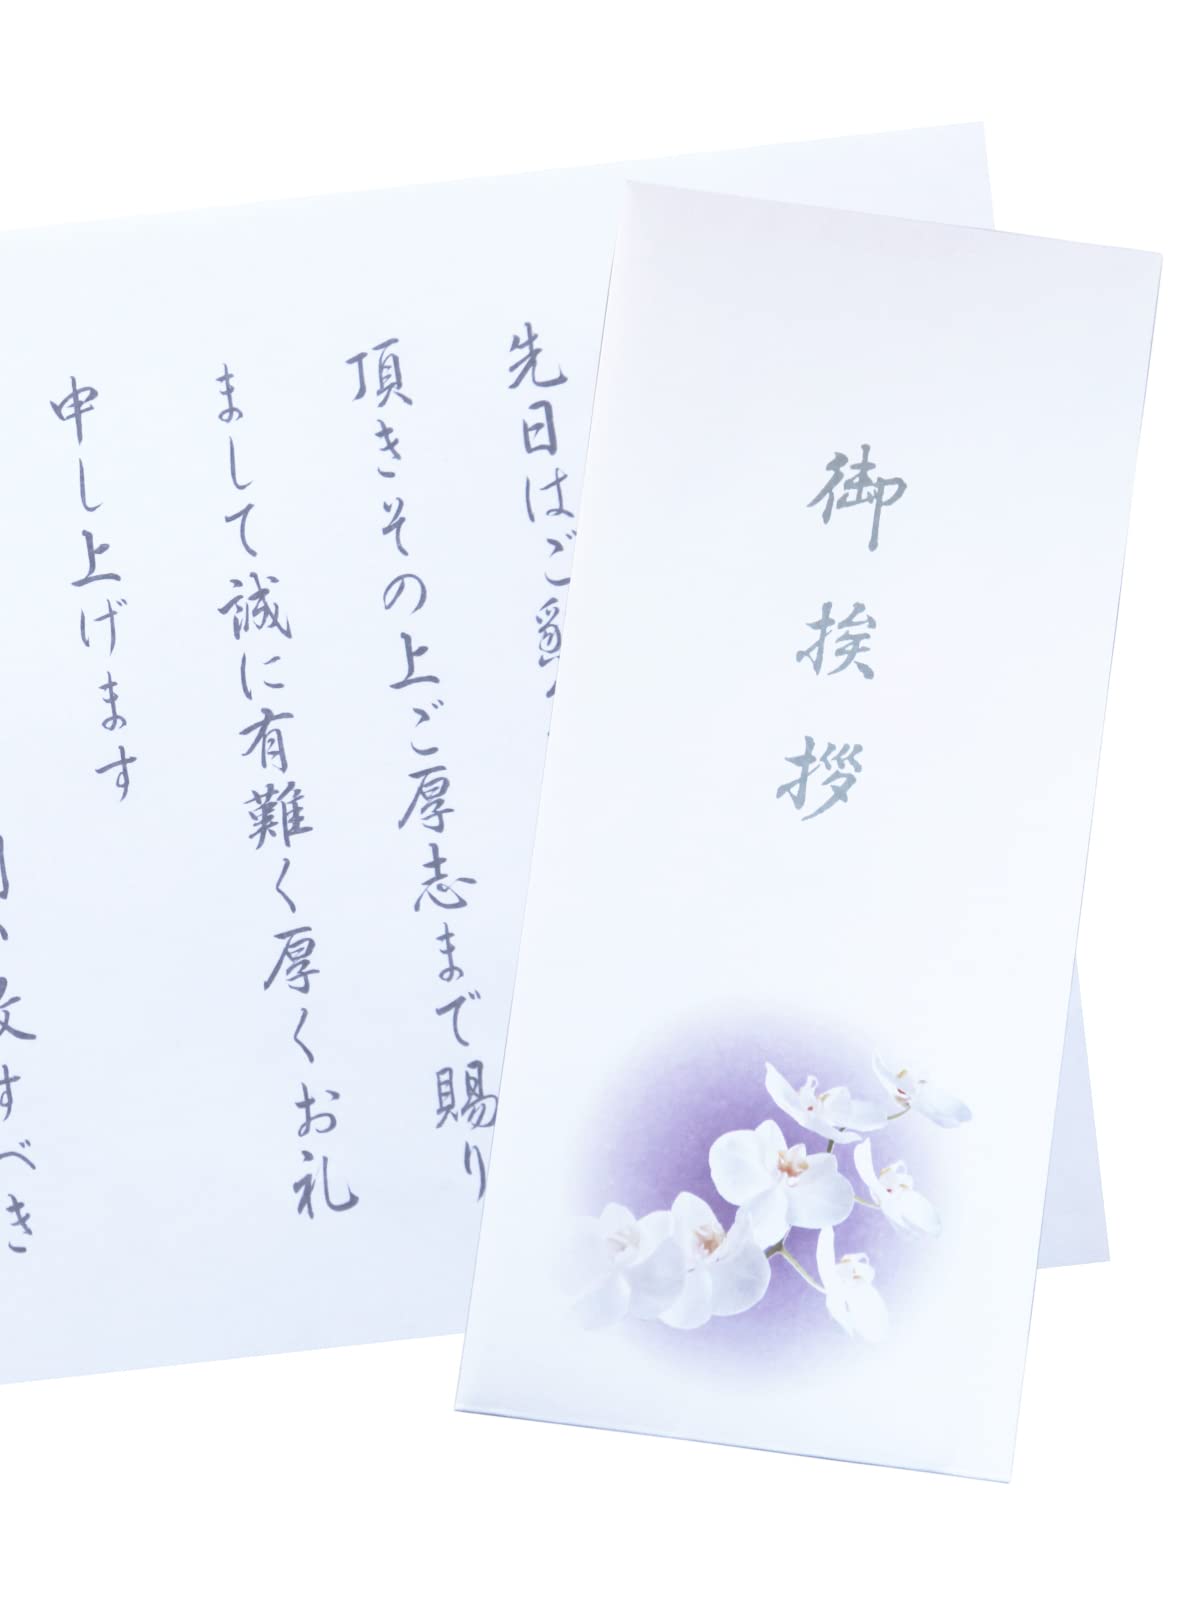 御挨拶
先日はご懇
頂きその上ご厚志まで賜り
まして誠に有難く厚くお礼
申し上げます
すべき